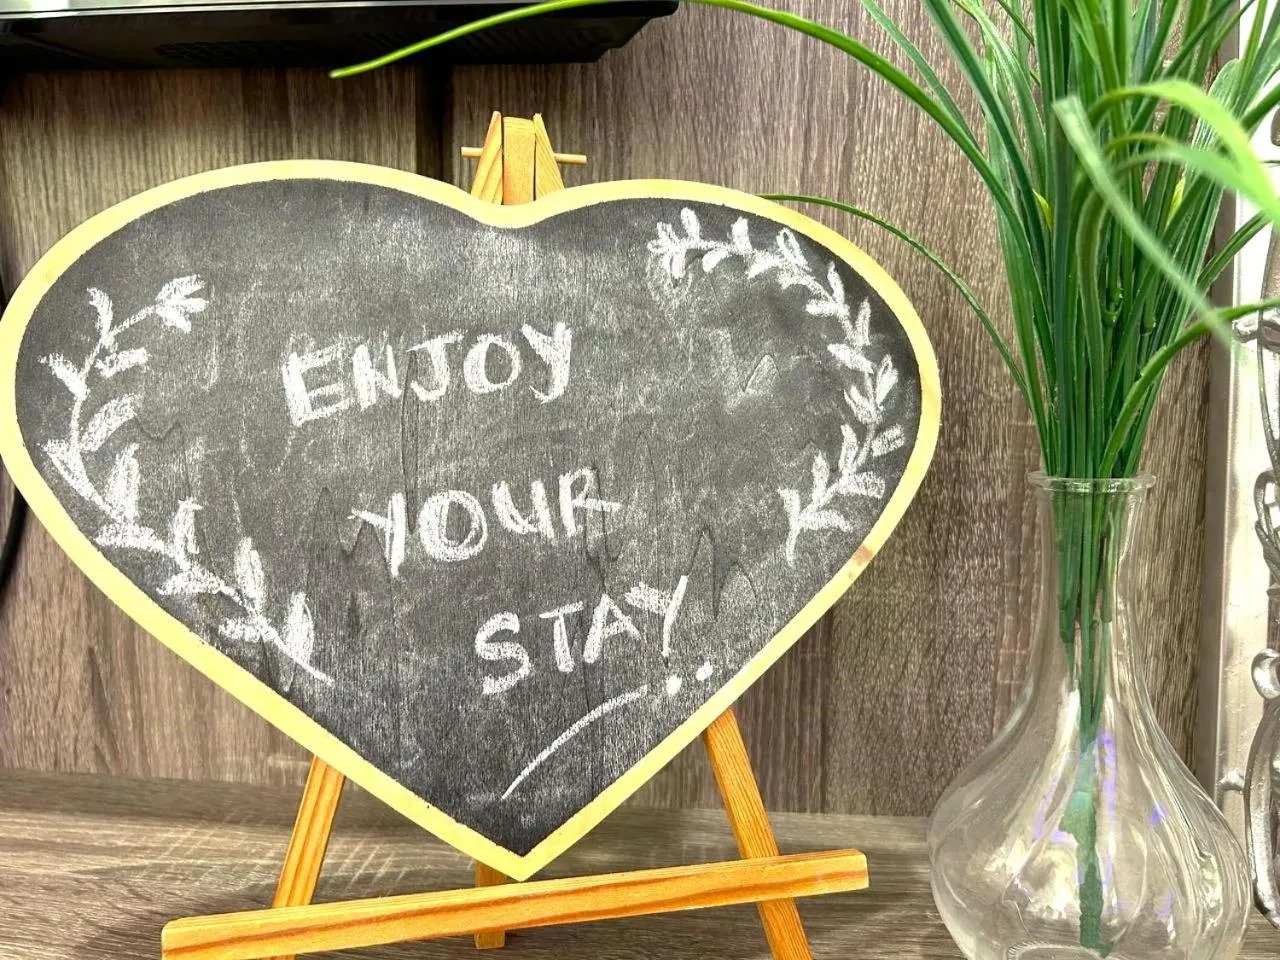 ENJOY
YOUR
STAY..